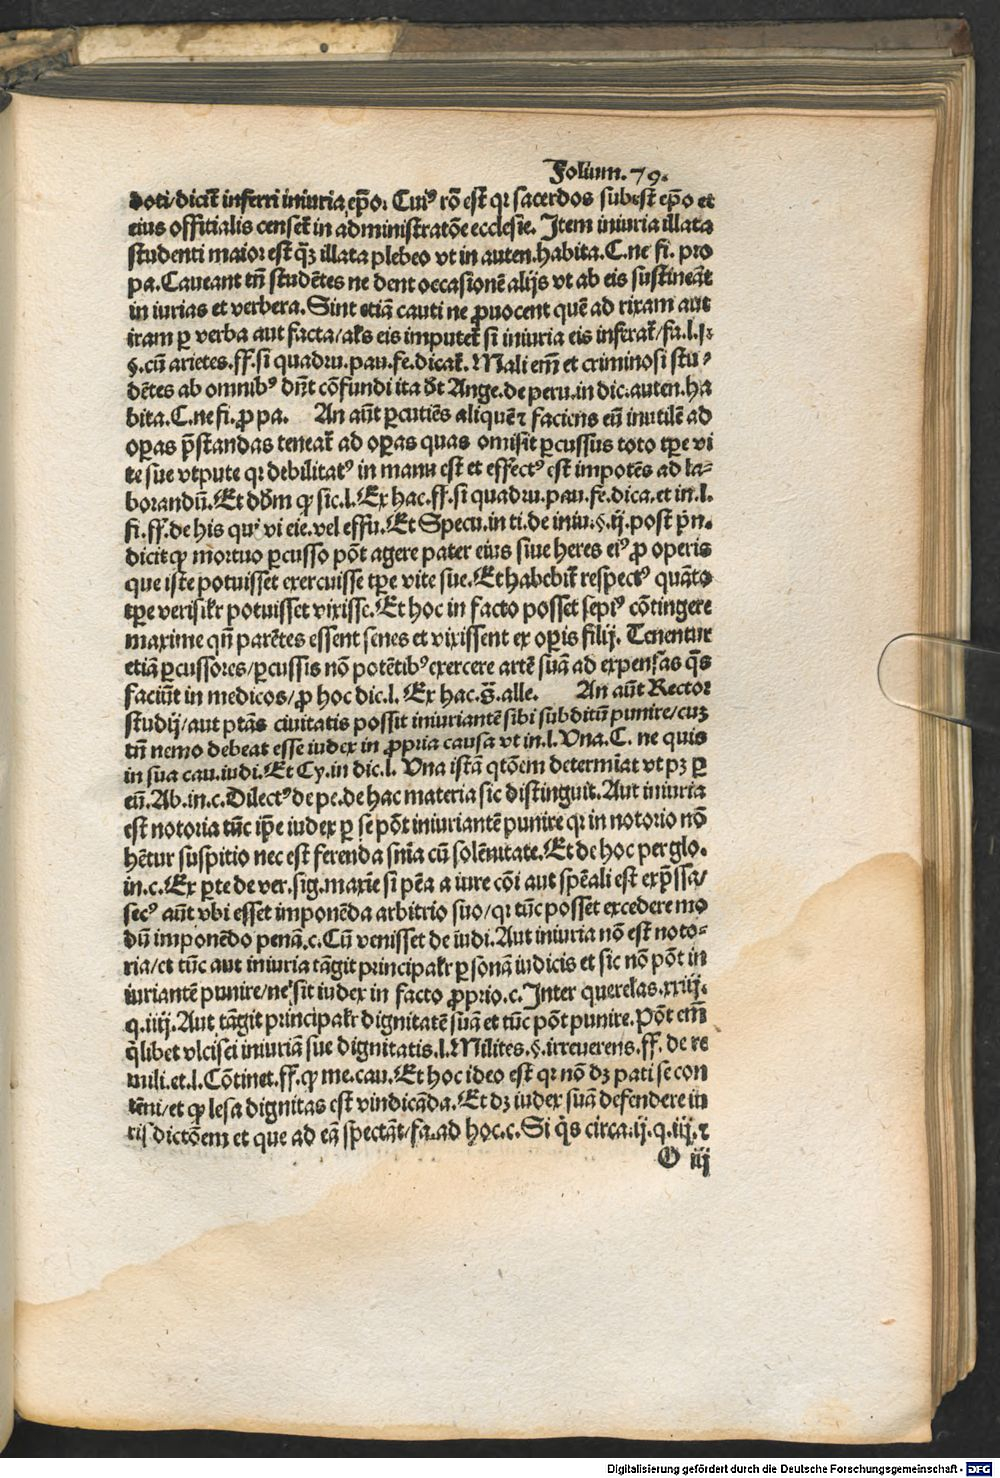 Folium. 79.
doti/dicit̄ inferri iniuria ep̄o. Cuiꝰ rō est qꝛ sacerdos subest ep̄o et
eius offitialis censet̄ in administratōe ecclesie. Item iniuria illata
studenti maior est qꝫ illata plebeo vt in auten. habita. C. ne fi. pro
pa. Caueant tn̄ studētes ne dent occasionē alijs vt ab eis sustineāt
in iurias et verbera. Sint etiā cauti ne ꝓuocent quē ad rixam aut
iram ꝑ verba aut facta/ al's eis imputet̄ si iniuria eis inferat̄/ fa. l. j.
§. cū arietes. ff. si quadru. pau. fe. dicat̄. Mali em̄ et criminosi stu⸗
dētes ab omnibꝰ dn̄t cōfundi ita dt̄ Ange. de peru. in dic. auten. ha
bita. C. ne fi. ꝓ pa. An aūt ꝑcutiēs aliquē ⁊ faciens eū inutilē ad
oꝑas p̄standas teneat̄ ad oꝑas quas omisit ꝑcussus toto tꝑe vi
te sue vtpute qꝛ debilitatꝰ in manu est et effectꝰ est impotēs ad la⸗
borandū. Et dd̄m ꝙ sic. l. Ex hac. ff. si quadru. pau. fe. dica. et in. l.
fi. ff. de his qui vi eie. vel effu. Et Specu. in ti. de iniu. §. ij. post pn̄.
dicit ꝙ mortuo ꝑcusso pōt agere pater eius siue heres eiꝰ ꝓ operis
que iste potuisset exercuisse tꝑe vite sue. Et habebit̄ respectꝰ quāto
tꝑe verisil'r potuisset vixisse. Et hoc in facto posset sepiꝰ cōtingere
maxime qn̄ parētes essent senes et vixissent ex oꝑis filij. Tenentur
etiā ꝑcussores/ ꝑcussis nō potētibꝰ exercere artē suā ad expensas q̄s
faciūt in medicos/ ꝓ hoc dic. l. Ex hac. s̄. alle. An aūt Rector
studij/ aut ptās ciuitatis possit iniuriantē sibi subditū punire/ cuꝫ
tn̄ nemo debeat esse iudex in ꝓpria causa vt in. l. Vna. C. ne quis
in sua cau. iudi. Et Cy. in dic. l. Vna istā qtōem determīat vt pꝫ ꝑ
eū. Ab. in. c. Dilectꝰ de pe. de hac materia sic distinguit. Aut iniuria
est notoria tūc ip̄e iudex ꝑ se pōt iniuriantē punire qꝛ in notorio nō
hētur suspitio nec est ferenda sn̄ia cū solēnitate. Et de hoc per glo.
in. c. Ex ꝑte de ver. sig. maxīe si pēa a iure cōi aut spēali est exp̄ssa/
secꝰ aūt vbi esset imponēda arbitrio suo/ qꝛ tūc posset excedere mo
dū imponēdo penā. c. Cū venisset de iudi. Aut iniuria nō est noto⸗
ria/ et tūc aut iniuria tāgit principal'r ꝑsonā iudicis et sic nō pōt in
iuriantē punire/ ne sit iudex in facto ꝓprio. c. Inter querelas. xxiij.
q. iiij. Aut tāgit principal'r dignitatē suā et tūc pōt punire. Pōt em̄
q̄libet vlcisci iniuriā sue dignitatis. l. Milites. §. irreuerens. ff. de re
mili. et. l. Cōtinet. ff. ꝙ me. cau. Et hoc ideo est qꝛ nō dꝫ pati se con
tēni/ et ꝙ lesa dignitas est vindicāda. Et dꝫ iudex suā defendere iu
risdictōem et que ad eā spectāt/ fa. ad hoc. c. Si q̄s circa. ij. q. iij. ⁊
O iij
Digitalisierung gefördert durch die Deutsche Forschungsgemeinschaft - DFG